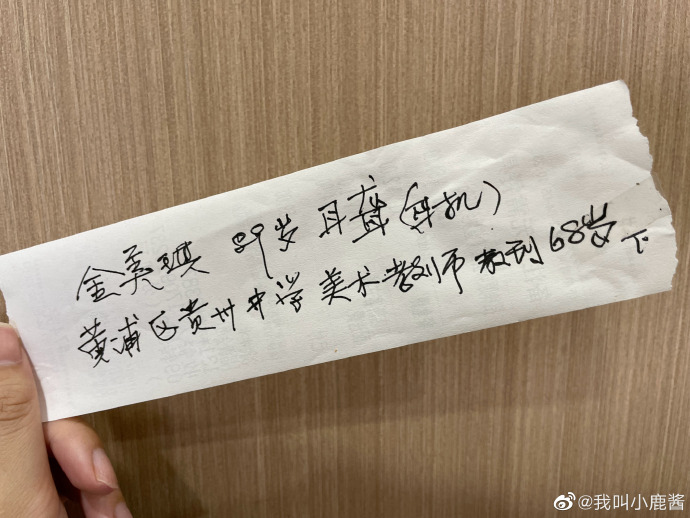 金英琪 89岁 耳聋(耳机)
黄浦区贵州中学 美术教师 教到68岁下
@我叫小鹿酱